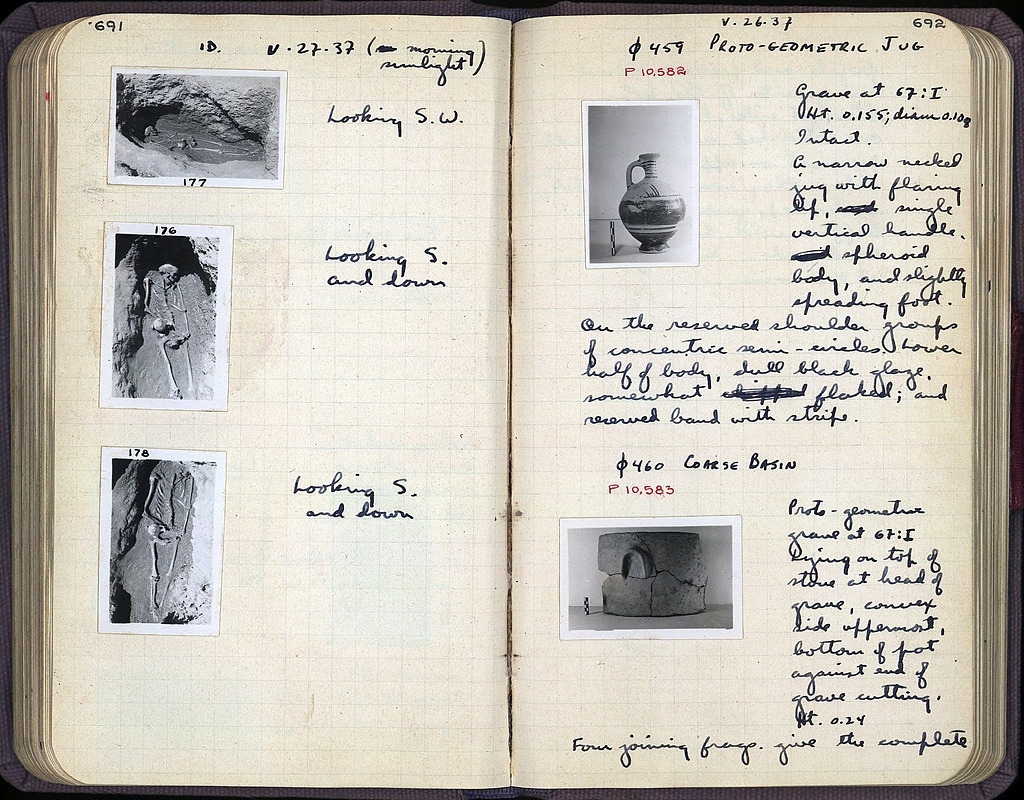 691
ID. V.27.37 (morning
sunlight)
177
Looking S.W.
176
Looking S.
and down
178
Looking S.
and down
V.26.37
692
φ 459 PROTO-GEOMETRIC JUG
P 10,582
Grave at 67:I
Ht. 0.155; diam 0.108
Intact.
A narrow necked
jug with flaring
lip, single
vertical handle.
spheroid
body, and slightly
spreading foot.
On the reserved shoulder groups
of concentric semi-circles. Lower
half of body, dull black glaze,
somewhat flaked; and
reserved band with stripe.
φ 460 COARSE BASIN
P 10,583
Proto-geometric
grave at 67:I
Lying on top of
stone at head of
grave, convex
side uppermost,
bottom of pot
against end of
grave cutting.
Ht. 0.24
Four joining frags. give the complete